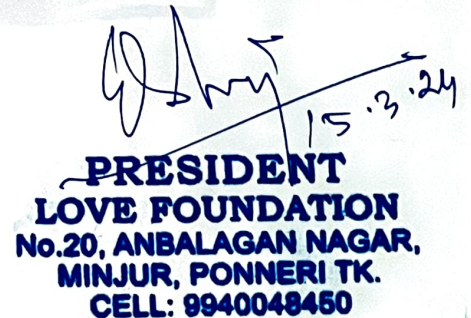 15.3.24
PRESIDENT
LOVE FOUNDATION
No.20, ANBALAGAN NAGAR,
MINJUR, PONNERI TK.
CELL: 9940048450